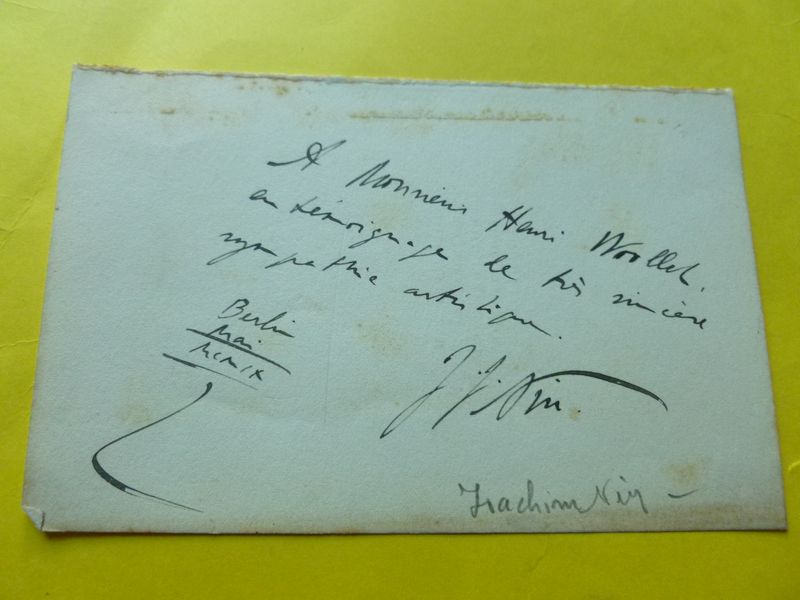 A Monsieur Henri Woollet.
en témoignage de très sincère
sympathie artistique.
Berlin
Mai.
MCMIX
J. J. Nin.
Joachim Nin –